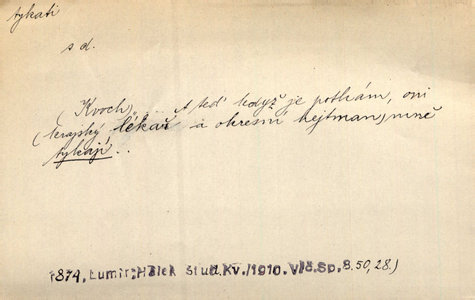 tykati
s d.
(Kvoch) .... A teď když je potkám, oni
(krajský lékař a okresní hejtman) mně
tykají ..
1874, Lumír; Hálek Stud. Kv./1910. V/č. Sp. 8. 50, 28.)